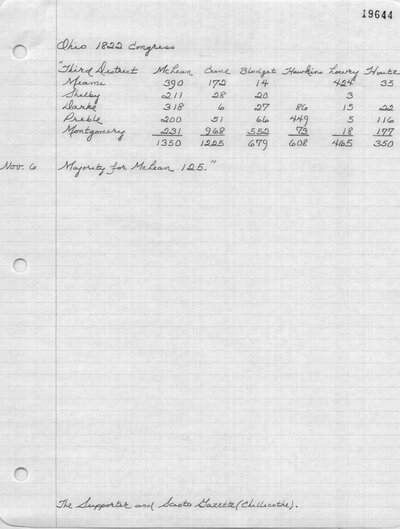 19644
Ohio 1822 Congress
"Third District McLean Crane Blodget Hawkins Lowry Houtz
Miami 390 172 14 424 35
Shelby 211 28 20 3
Darke 318 6 27 86 15 22
Preble 200 51 66 449 5 116
Montgomery 231 968 552 73 18 177
1350 1225 679 608 465 350
Nov. 6 Majority for McLean 125."
The Supporter and Scioto Gazette (Chillicothe).